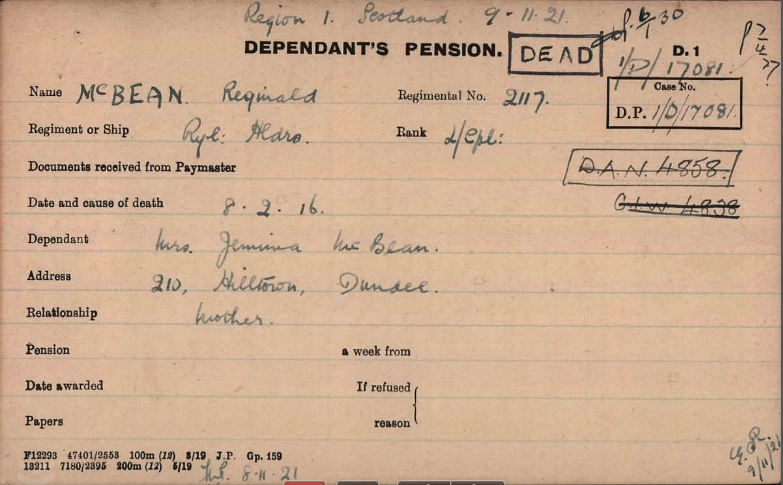 Region 1. Scotland. 9-11-21.
DEPENDANT'S PENSION. DEAD D. 1
1/D/17081.
Name McBEAN. Reginald Regimental No. 2117. Case No.
D.P. 1/D/17081.
Regiment or Ship Ryl: Hdrs. Rank L/Cpl:
Documents received from Paymaster D.A.N. 4858.
Date and cause of death 8.2.16. G.I.W 4838
Dependant Mrs. Jemima McBean.
Address 210, Hilltown, Dundee.
Relationship Mother.
Pension a week from
Date awarded If refused
Papers reason
F12293 47401/2553 100m (12) 3/19 J.P. Gp. 159
13211 7180/2395 200m (12) 5/19 8-11-21
9/11/21